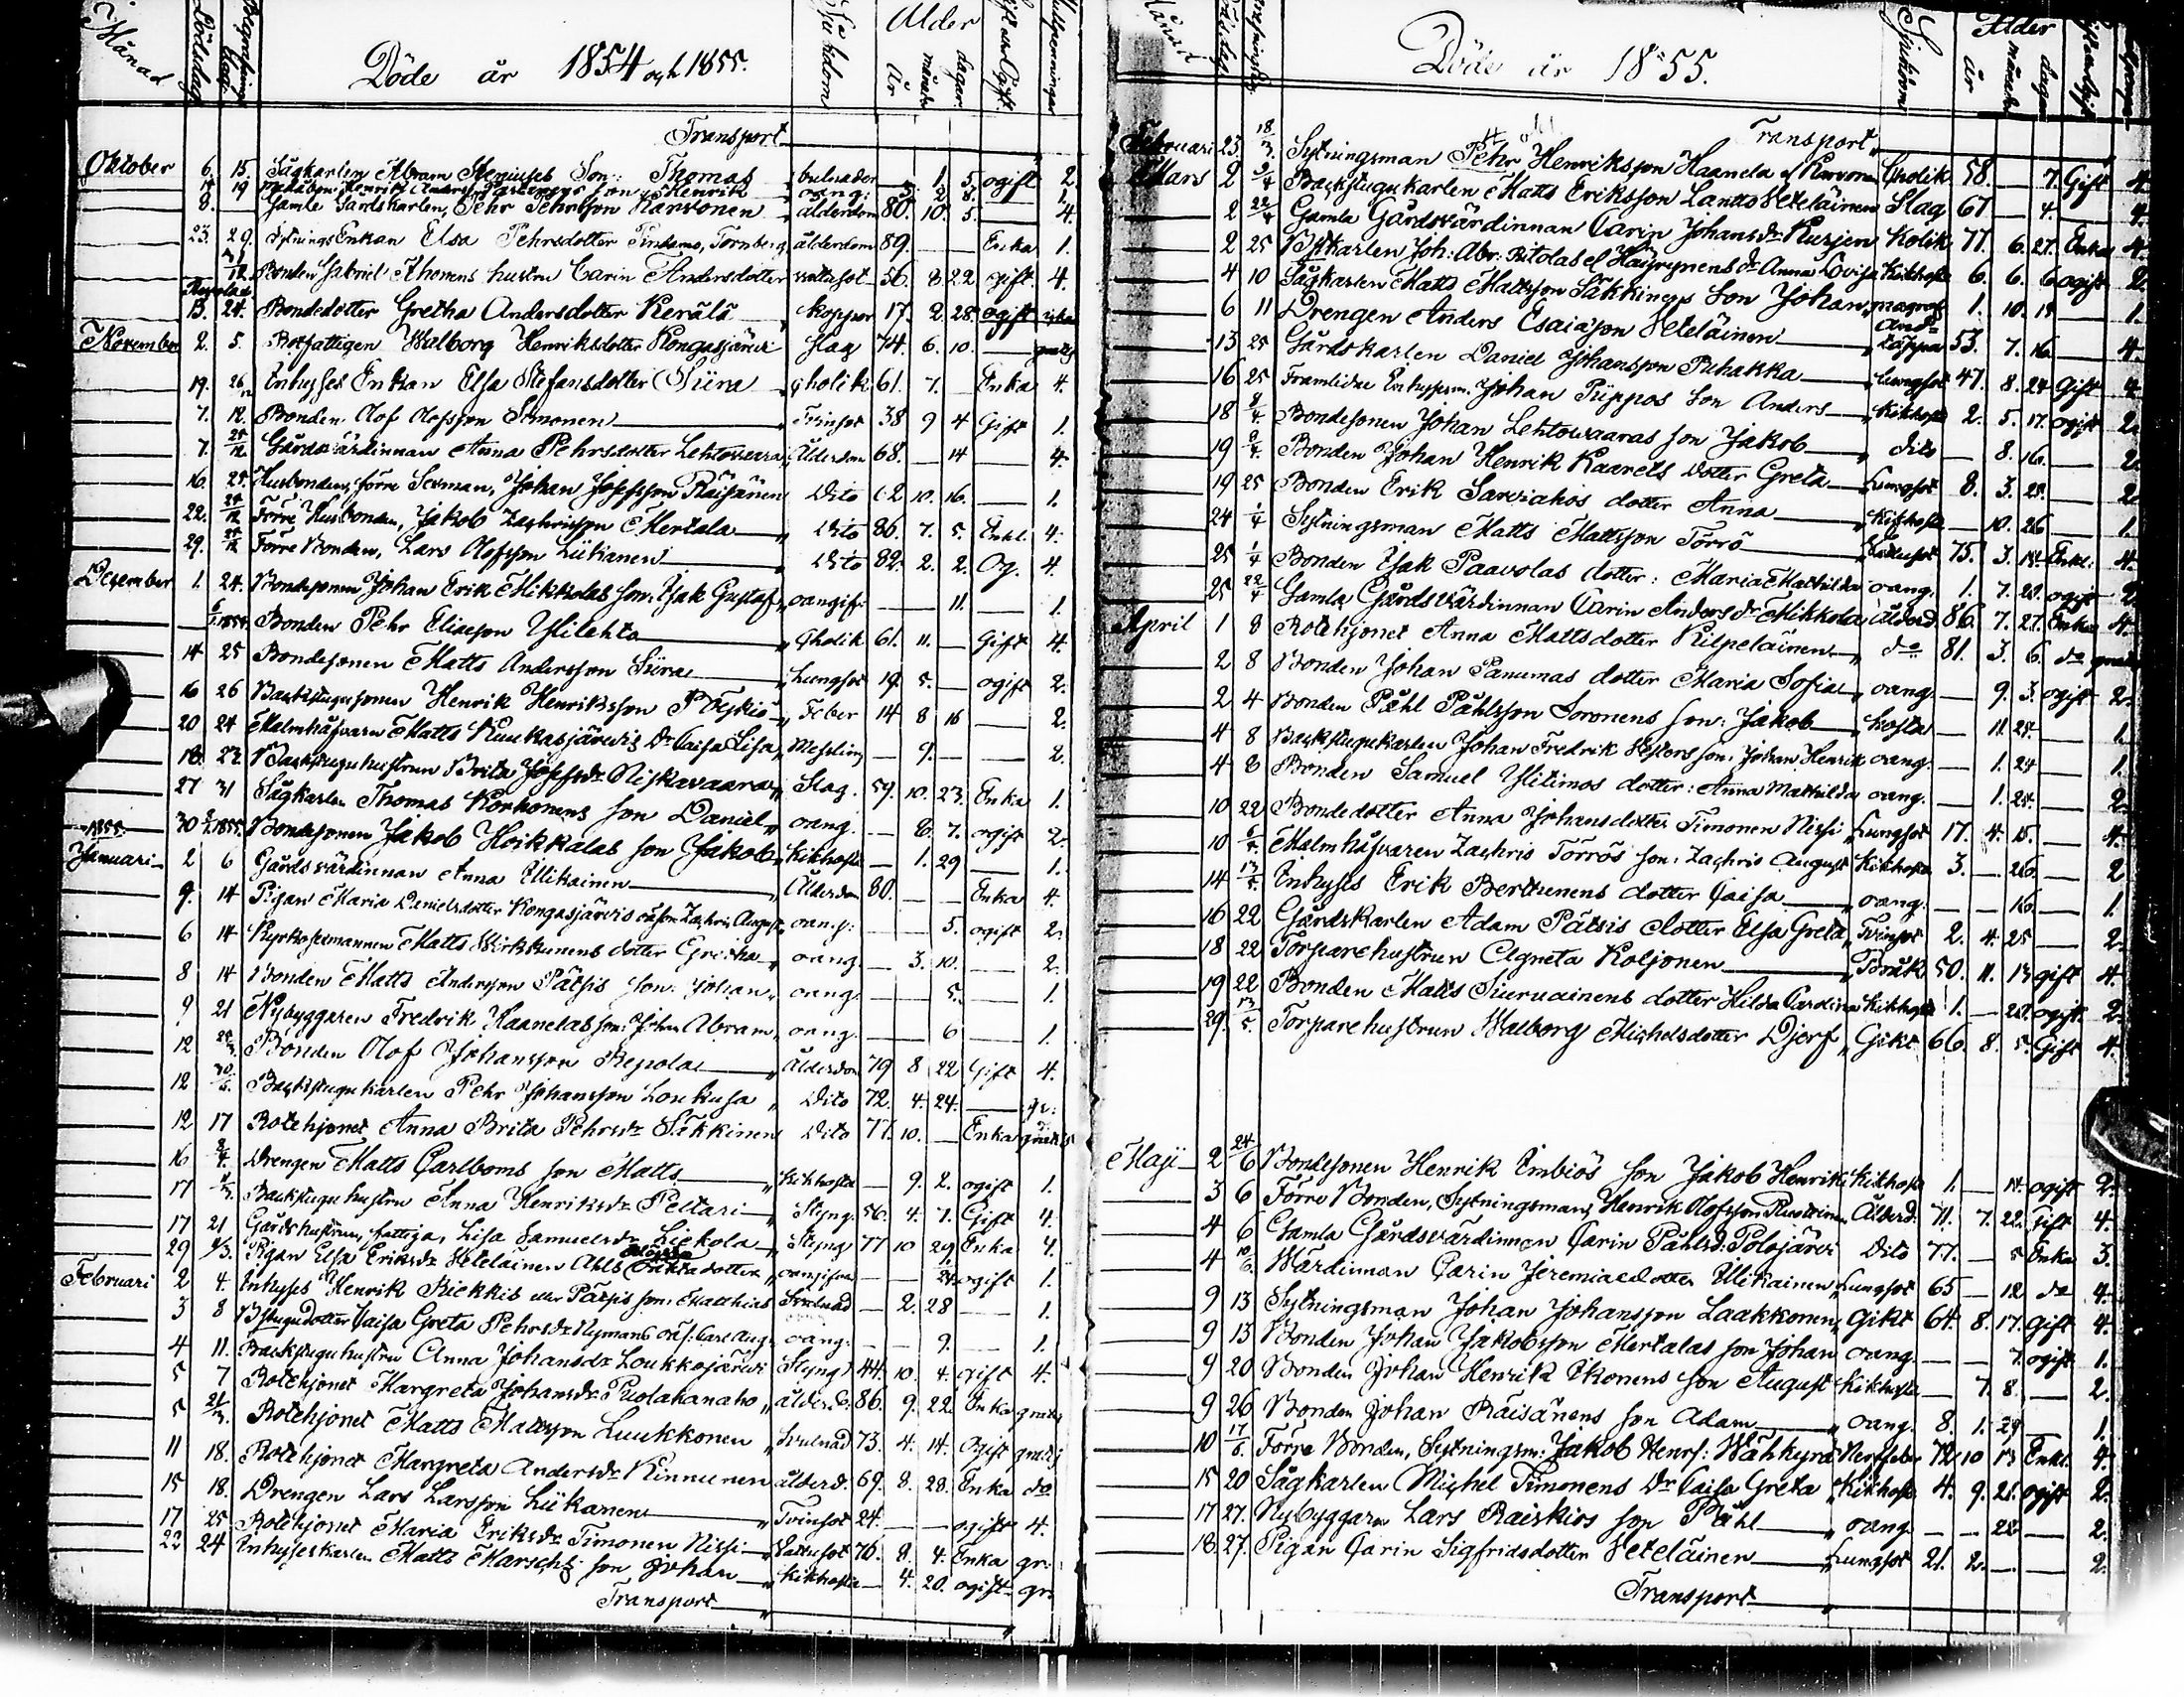 Månad Dödsdag Begrafnings dag Döde år 1854 och 1855. Sjukdom Ålder År månad dagar Gift eller Ogift
Transport
Oktober 6. 15. Sågkarlen Abram Steniuses Son: Thomas bulnader — 1. 5. ogift 2.
19 Henrik son Henrik oang: 3. 2. 8. 1.
8. — Gamle Gårdskarlen, Pehr Pehrsson Karvonen ålderdom 80. 10. 5. — 4.
23. 29. Sytnings Enkan Elsa Pehrsdotter Pintamo, Tornberg, ålderdom 89. Enka 1.
Bonden Gabriel Thomens hustru Carin Andersdotter vattusot 56. 8. 22. gift. 4.
13. 24. Bondedotter Gretha Andersdotter Kerälä koppor 17. 2. 28. ogift
November 2. 5. Rotfattigen Walborg Henriksdotter Kongasjärvi slag 74. 6. 10. —
19. 26 Inhyses Enkan Elsa Stefansdotter Siira cholik 61. 7. — Enka 4.
7. 12. Bonden Olof Olofsson Simonen Tvinsot 38 9 4 Gift 1.
7. 25/12 Gårdsvärdinnan Anna Pehrsdotter Lehtovaara Ålderdom 68. — 14 — 4.
16. 25. Husbonden, förre Sexman, Johan Josefsson Räisänen Dito 62 10. 16. — 1.
22. Förre Husbonden, Jakob Zachrisson Mertala Dito 86. 7. 5. Enkl. 4.
29. Förre Bonden, Lars Olofsson Liikanen Dito 82. 2. 2. Og. 4.
December 1. 24. Bondesonen Johan Erik Mikkolas son: Isak Gustaf oangifv. — 11. — 1.
6/1 1855. Bonden Pehr Eliasson Ylilehto Cholik 61. 11. — Gift 4.
14 25 Bondesonen Matts Andersson Siira Lungsot 19. 5. — ogift 2.
16 26 Backstugusonen Henrik Henriksson Pöykiö Feber 14 8 16 — 2.
20 24 Malmhåfvaren Matts Kuukasjärvis Dr Caisa Lisa Messling — 9. — 2.
18. 27. Backstuguhustrun Brita Josefsdr Niskavaara Slag. 59. 10. 23. Enka 1.
27 31 Sågkarlen Thomas Korhonens son Daniel oang. — 8. 7. ogift 2.
30 1855. Bondesonen Jakob Heikkalas son Jakob Kikhosta — 1. 29 — 1.
1855.
Januari 2 6 Gårdsvärdinnan Anna Ulikainen Ålderdom 80. — — Enka 4.
9. 14 Pigan Maria Danielsdotter Kongasjärvis oä son Zachris August oang: — — 5. ogift 2.
6 14 Kyrkosexmannen Matts Wirkkunens dotter Greta oang. — 3. 10. — 2.
8 14 Bonden Matts Andersson Pätsis son: Johan oang. — — 5. — 1.
9 21 Nybyggaren Fredrik Haanelas son: Johan Abram oang. — — 6 — 1.
12 Bonden Olof Johansson Repola Ålderdom 79 8 22 Gift 4.
12 Backstugukarlen Pehr Johansson Loukusa Dito 72. 4. 24. — gr:
12 17 Rotehjonet Anna Brita Pehrsdr Säkkinen Dito 77. 10. — Enka gratis
16 Drengen Matts Carlboms son Matts Kikhosta — 9. 2. ogift 1.
17 Backstuguhustru Anna Henriksdr Peltari Styng. 56. 4. 7. Gift 4.
17 21 Gårdshustrun, fattiga, Lisa Samuelsdr Liekola Styng 77 10 29 Enka 4.
29 4/3. Pigan Elsa Eriksdr Heteläinen dotter oangifven — — ogift 1.
Februari 2 4. Inhyses Henrik Riekkis eller Pätsis son: Matthias Svulnad — 2. 28 — 1.
3 8 Bstugudotter Caisa Greta Pehrsdr Nymans oä s: Carl Aug: oang: — — 9. — 1.
4 11. Backstuguhustru Anna Johansdr Loukkojärvi Styng 44. 10. 4. gift 4.
5 7 Rotehjonet Margreta Johansdr Puolakanaho ålderd. 86. 9. 22. Enka gratis
5 21/3. Rotehjonet Matts Mattsson Luukkonen Svulnad 73. 4. 14. Ogift gratis
11 18. Rotehjonet Margreta Andersdr Kinnunen ålderd. 69. 8. 28. Enka do
15 18. Drengen Lars Larsson Liikanen Tvinsot 24. — — ogift 4.
17 25 Rotehjonet Maria Eriksdr Timonen Nissi Vattusot 76. 8. 4. Enka gr.
22 24 Inhyseskarlen Matts Marschs son Johan Kikhosta — 4. 20. ogift gr.
Transport
Döde år 1855. Sjukdom Ålder år månad dagar
Transport
Februari 23 18/3. Sytningsman Pehr Henriksson Haanela el Karvonen Cholik 58. — 7. Gift 4.
Mars 2 Backstugukarlen Matts Eriksson Lantto Heteläinen Slag 67 — 4. 4.
2 22/4 Gamla Gårdsvärdinnan Carin Johansdr Kurjen Kolik 77. 6. 27. Enka 4.
2 25 Bstkarlen Joh: Abr: Ritolas el Häyrynens dr Anna Lovisa Kikhosta 6. 6. 6. ogift 2.
4 10 Sågkarlen Matts Mattsson Säkkinens Son Johan 1. 10. 19. — 1.
6 11 Drengen Anders Esaiasson Heteläinen andtäppa 53. 7. 16. — 4.
13 25 Gårdskarlen Daniel Johansson Puhakka Lungsot 47. 8. 24 Gift 4.
16 25 Framlidne Inhysesm. Johan Piippos Son Anders Kikhosta 2. 5. 17. ogift 2.
18 8/4. Bondesonen Johan Lehtovaaras son Jakob dito — 8. 16. — 2.
19 9/4. Bonden Johan Henrik Kaarels dotter Greta Lungsot 8. 3. 28. — 2.
19 25 Bonden Erik Sarviahos dotter Anna Kikhosta — 10. 26 — 1.
24 1/4 Sytningsman Matts Mattsson Törrö Vattusot 75. 3. 14. Enkl: 4.
25 1/4 Bonden Isak Paavolas dotter: Maria Mathilda oang. 1. 7. 28. ogift 2.
25 22/4 Gamla Gårdsvärdinnan Carin Andersdr Mikkola Ålderd. 86. 7. 27. Enka 4.
April 1 8 Rotehjonet Anna Mattsdotter Kilpeläinen do 81. 3. 6. do gratis
2 8 Bonden Johan Panumas dotter Maria Sofia oang. — 9. 3. ogift 2.
2 4 Bonden Påhl Påhlsson Soronens son: Jakob hosta — 11. 25. — 1.
4 8 Backstugukarlen Johan Fredrik son: Johan Henrik oang. — 1. 24 — 1.
4 8 Bonden Samuel Ylitimos dotter: Anna Mathilda oang. — 1. 24. — 2.
10 22 Bondedotter Anna Johansdotter Timonen Nissi Lungsot 17. 4. 15. — 4.
10 6/5. Malmhåfvaren Zachris Törrös son: Zachris August Kikhosta 3. — 26. — 2
14 13/5. Inhyses Erik Berttunens dotter Caisa oang. — — 16. — 1.
16 22 Gårdskarlen Adam Pätsis dotter Elsa Greta Tvinsot 2. 4. 25 — 2.
18 22 Torparehustrun Agneta Koljonen Bråk 50. 11. 13 gift 4.
19 22 Bonden Matts Siuruainens dotter Hilda Carolina Kikhosta 1. — 22. ogift. 2.
29. 13/5. Torparehustrun Walborg Michelsdotter Djerf Gikt 66. 8. 5. Gift 4.
Maji 2 24/6 Bondesonen HenrikImbiös son Jakob Henrik Kikhosta 1. — 14. ogift 2.
3 6 Förre Bonden, Sytningsman, Henrik Olofsson Ruottinen Ålderd. 71. 7. 22. Gift 4.
4 6 Gamla Gårdsvärdinnan Carin Påhlsd: Polojärvi Dito 77. — 5 Enka 3.
4 10/6. Wärdinnan Carin Jeremiaedotter Ulikainen Lungsot 65 — 12 do 4.
9 13 Sytningsman Johan Johansson Laakkonen Gikt 64. 8. 17. Gift 4.
9 13 Bonden Johan Jakobsson Mertalas son Johan oang. — — 7. ogift 1.
9 20 Bonden Johan Henrik Ikonens son August Kikhosta — 7. 8. — 2.
9 26 Bonden Johan Räisänens son Adam oang. 8. 1. 29 — 1.
10 17/6. Förre Bonden, Sytningsm: Jakob Henrs: Wähkyrä Nervfeber 72 10 13 Enkl. 4.
15 20 Sågkarlen Michel Timonens Dr Caisa Greta Kikhosta 4. 9. 21. ogift 2.
17 27. Nybyggaren Lars Raiskios son Påhl oang — — 22 — 2.
18. 27. Pigan Carin Sigfridsdotter Heteläinen Lungsot 21. 2. — — 2.
Transport